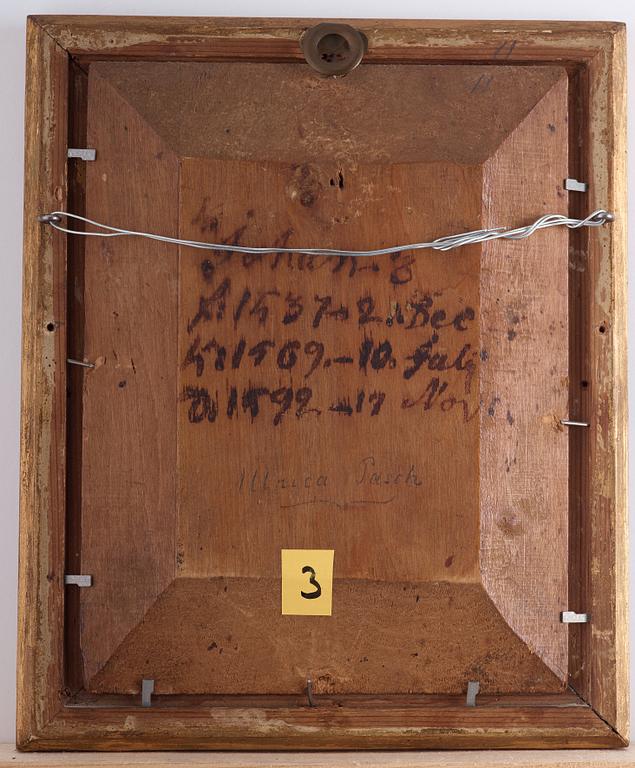 Johan. 3
1537. 2. Dec
Kr 1569. - 10. July
D. 1592 - 17 Nov.
Ulrica Pasch
3